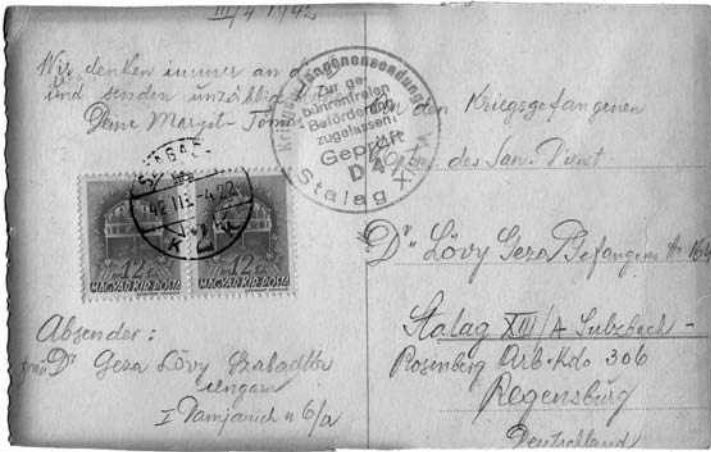 III/4 1942
Wir denken immer an
und senden unzählige
Deine Margit-Tomi
Kriegsgefangenensendung
Zur ge-
bührenfreien
Beförderung
zugelassen!
Geprüft
D 4
Stalag XIII A
42 III -4. 22
12 12
MAGYAR KIR. POSTA MAGYAR KIR. POSTA
Absender:
Dr Geza Lövy Szabadka
Ungarn
I Damjanich u 6/a
An den Kriegsgefangenen
des San. Dienst
Dr. Lövy Geza Gefangene Nr
Stalag XIII/A Sulzbach-
Rosenberg Arb. Kdo 306
Regensburg
Deutschland